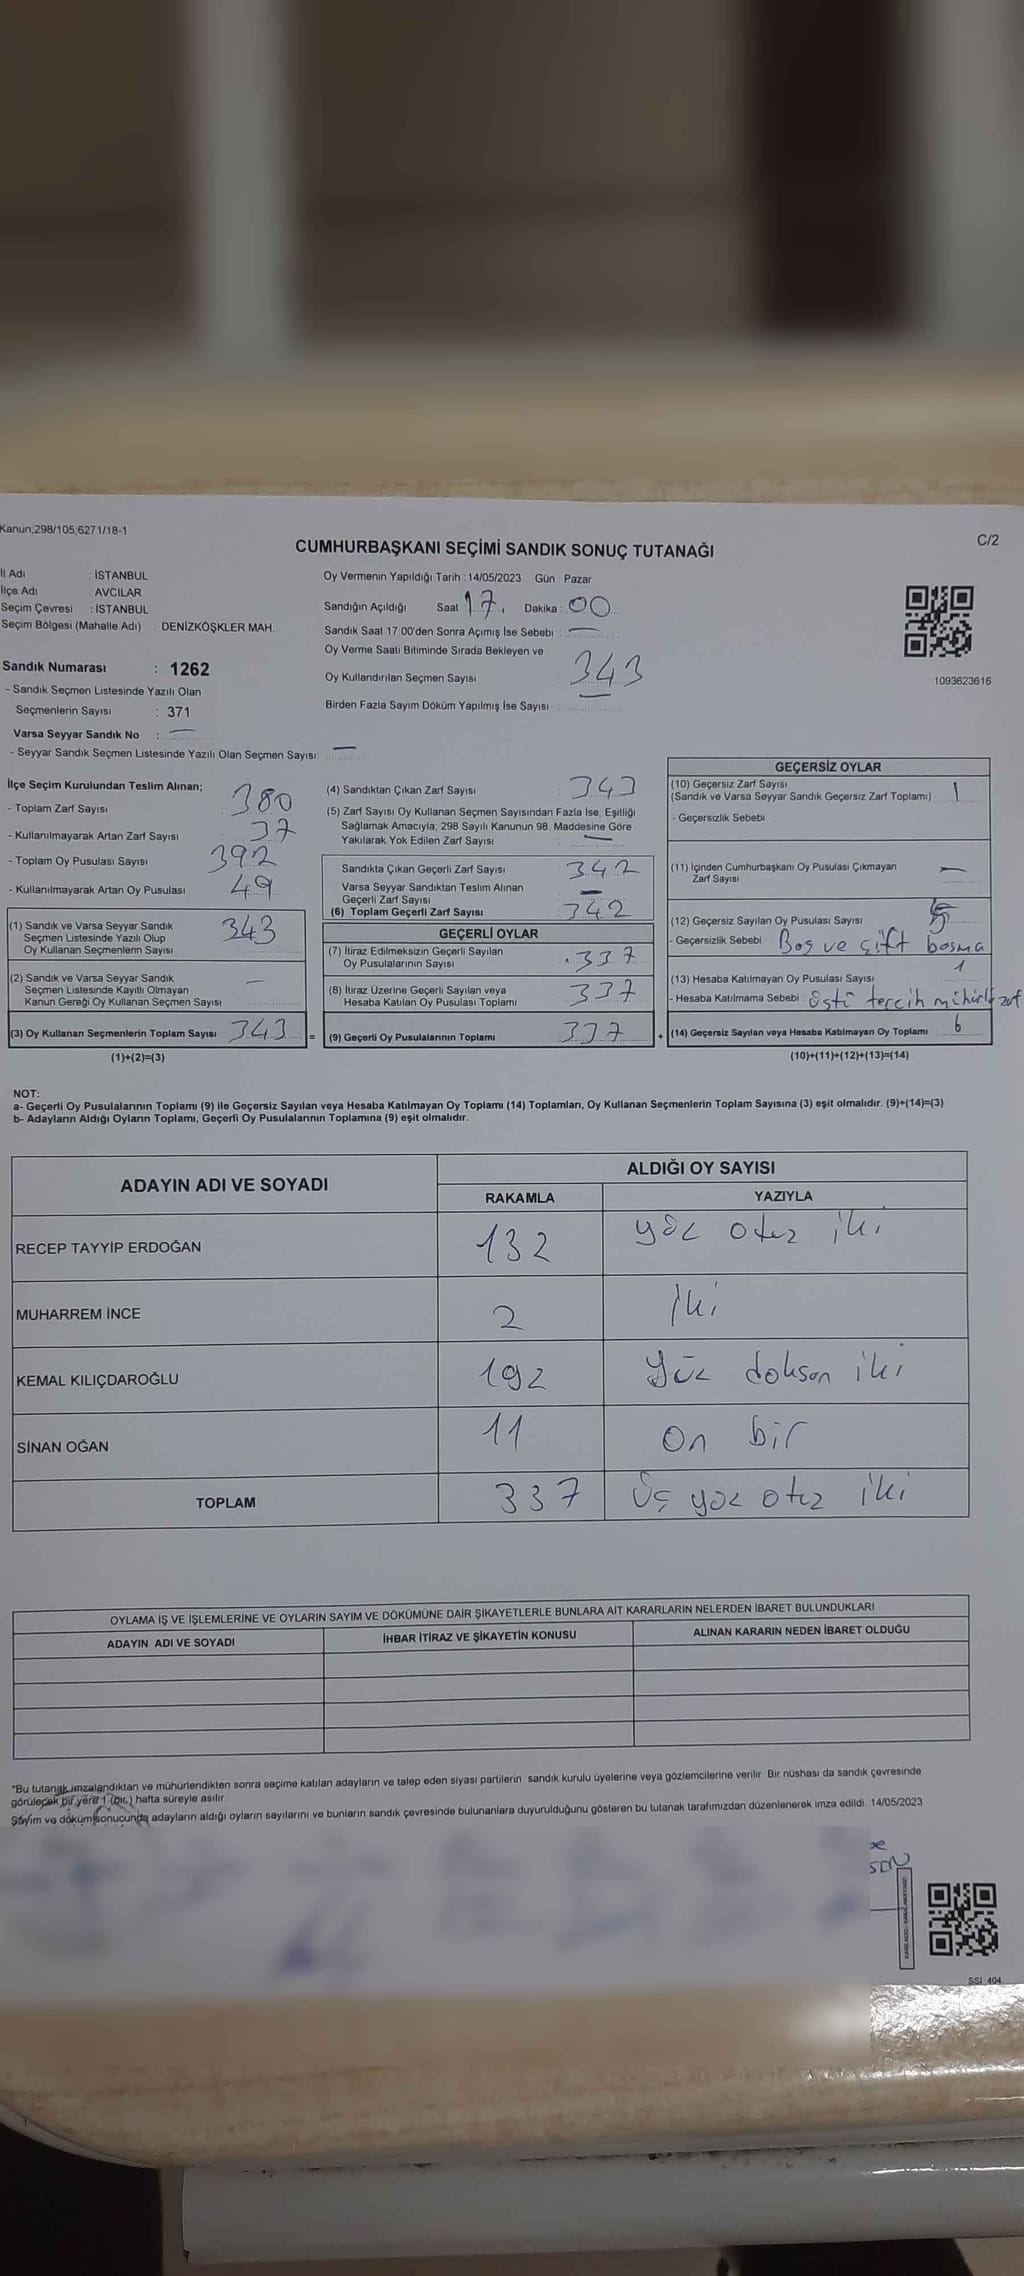 Kanun;298/105,6271/18-1
C/2
CUMHURBAŞKANI SEÇİMİ SANDIK SONUÇ TUTANAĞI
İl Adı : İSTANBUL
İlçe Adı : AVCILAR
Seçim Çevresi : İSTANBUL
Seçim Bölgesi (Mahalle Adı) DENİZKÖŞKLER MAH.
Sandık Numarası : 1262
- Sandık Seçmen Listesinde Yazılı Olan
Seçmenlerin Sayısı : 371
Varsa Seyyar Sandık No : —
- Seyyar Sandık Seçmen Listesinde Yazılı Olan Seçmen Sayısı: —
Oy Vermenin Yapıldığı Tarih : 14/05/2023 Gün Pazar
Sandığın Açıldığı Saat 17. Dakika : 00
Sandık Saat 17:00'den Sonra Açımış İse Sebebi : —
Oy Verme Saati Bitiminde Sırada Bekleyen ve
Oy Kullandırılan Seçmen Sayısı 343
Birden Fazla Sayım Döküm Yapılmış İse Sayısı —
1093623616
İlçe Seçim Kurulundan Teslim Alınan;
- Toplam Zarf Sayısı 380
- Kullanılmayarak Artan Zarf Sayısı 37
- Toplam Oy Pusulası Sayısı 392
- Kullanılmayarak Artan Oy Pusulası 49
(1) Sandık ve Varsa Seyyar Sandık
Seçmen Listesinde Yazılı Olup
Oy Kullanan Seçmenlerin Sayısı 343
(2) Sandık ve Varsa Seyyar Sandık
Seçmen Listesinde Kayıtlı Olmayan
Kanun Gereği Oy Kullanan Seçmen Sayısı —
(3) Oy Kullanan Seçmenlerin Toplam Sayısı 343 =
(1)+(2)=(3)
(4) Sandıktan Çıkan Zarf Sayısı 343
(5) Zarf Sayısı Oy Kullanan Seçmen Sayısından Fazla İse, Eşitliği
Sağlamak Amacıyla, 298 Sayılı Kanunun 98. Maddesine Göre
Yakılarak Yok Edilen Zarf Sayısı —
Sandıkta Çıkan Geçerli Zarf Sayısı 342
Varsa Seyyar Sandıktan Teslim Alınan
Geçerli Zarf Sayısı —
(6) Toplam Geçerli Zarf Sayısı 342
GEÇERLİ OYLAR
(7) İtiraz Edilmeksizin Geçerli Sayılan
Oy Pusulalarının Sayısı 337
(8) İtiraz Üzerine Geçerli Sayılan veya
Hesaba Katılan Oy Pusulası Toplamı 337
(9) Geçerli Oy Pusulalarının Toplamı 337 +
GEÇERSİZ OYLAR
(10) Geçersiz Zarf Sayısı
(Sandık ve Varsa Seyyar Sandık Geçersiz Zarf Toplamı) 1
- Geçersizlik Sebebi
(11) İçinden Cumhurbaşkanı Oy Pusulası Çıkmayan
Zarf Sayısı —
(12) Geçersiz Sayılan Oy Pusulası Sayısı 5
- Geçersizlik Sebebi Boş ve çift basma
(13) Hesaba Katılmayan Oy Pusulası Sayısı 1
- Hesaba Katılmama Sebebi : üstü tercih mühürlü zarf
(14) Geçersiz Sayılan veya Hesaba Katılmayan Oy Toplamı 6
(10)+(11)+(12)+(13)=(14)
NOT:
a- Geçerli Oy Pusulalarının Toplamı (9) ile Geçersiz Sayılan veya Hesaba Katılmayan Oy Toplamı (14) Toplamları, Oy Kullanan Seçmenlerin Toplam Sayısına (3) eşit olmalıdır. (9)+(14)=(3)
b- Adayların Aldığı Oyların Toplamı, Geçerli Oy Pusulalarının Toplamına (9) eşit olmalıdır.
ADAYIN ADI VE SOYADI
ALDIĞI OY SAYISI
RAKAMLA YAZIYLA
RECEP TAYYİP ERDOĞAN 132 yüz otuz iki
MUHARREM İNCE 2 iki
KEMAL KILIÇDAROĞLU 192 yüz doksan iki
SİNAN OĞAN 11 on bir
TOPLAM 337 üç yüz otuz iki
OYLAMA İŞ VE İŞLEMLERİNE VE OYLARIN SAYIM VE DÖKÜMÜNE DAİR ŞİKAYETLERLE BUNLARA AİT KARARLARIN NELERDEN İBARET BULUNDUKLARI
ADAYIN ADI VE SOYADI İHBAR İTİRAZ VE ŞİKAYETİN KONUSU ALINAN KARARIN NEDEN İBARET OLDUĞU
*Bu tutanak imzalandıktan ve mühürlendikten sonra seçime katılan adayların ve talep eden siyasi partilerin sandık kurulu üyelerine veya gözlemcilerine verilir. Bir nüshası da sandık çevresinde
görülecek bir yere 1 (bir) hafta süreyle asılır.
Sayım ve döküm sonucunda adayların aldığı oyların sayılarını ve bunların sandık çevresinde bulunanlara duyurulduğunu gösteren bu tutanak tarafımızdan düzenlenerek imza edildi. 14/05/2023
SSI 404